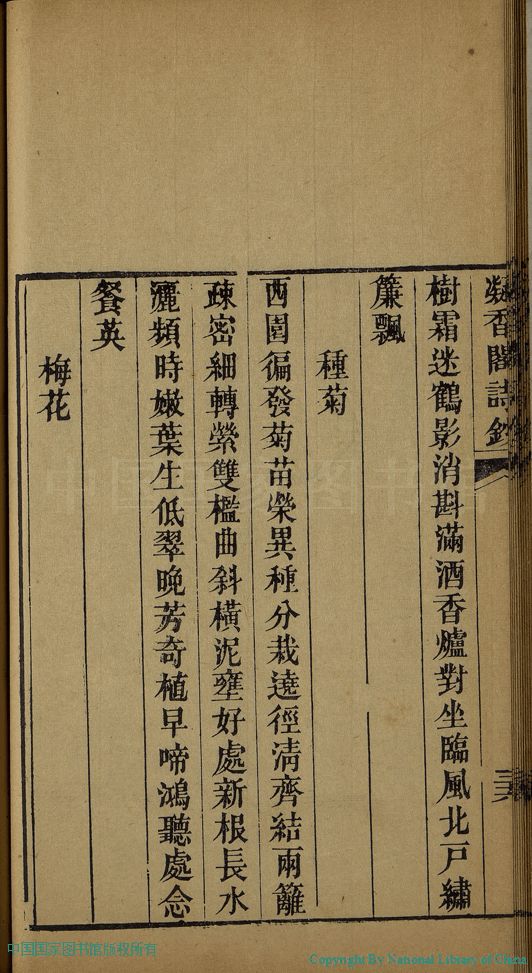 凝香閣詩鈔
樹霜迷鶴影消斟滿酒香爐對坐臨風北戸繡
簾飄
種菊
西園徧發菊苗榮異種分栽遶徑清齊結兩籬
疎密細轉縈雙檻曲斜橫泥壅好處新根長水
灑頻時嫩葉生低翠晚芳奇植早啼鴻聽處念
餐英
梅花
中国国家图书馆版权所有
Copyright By National Library of China